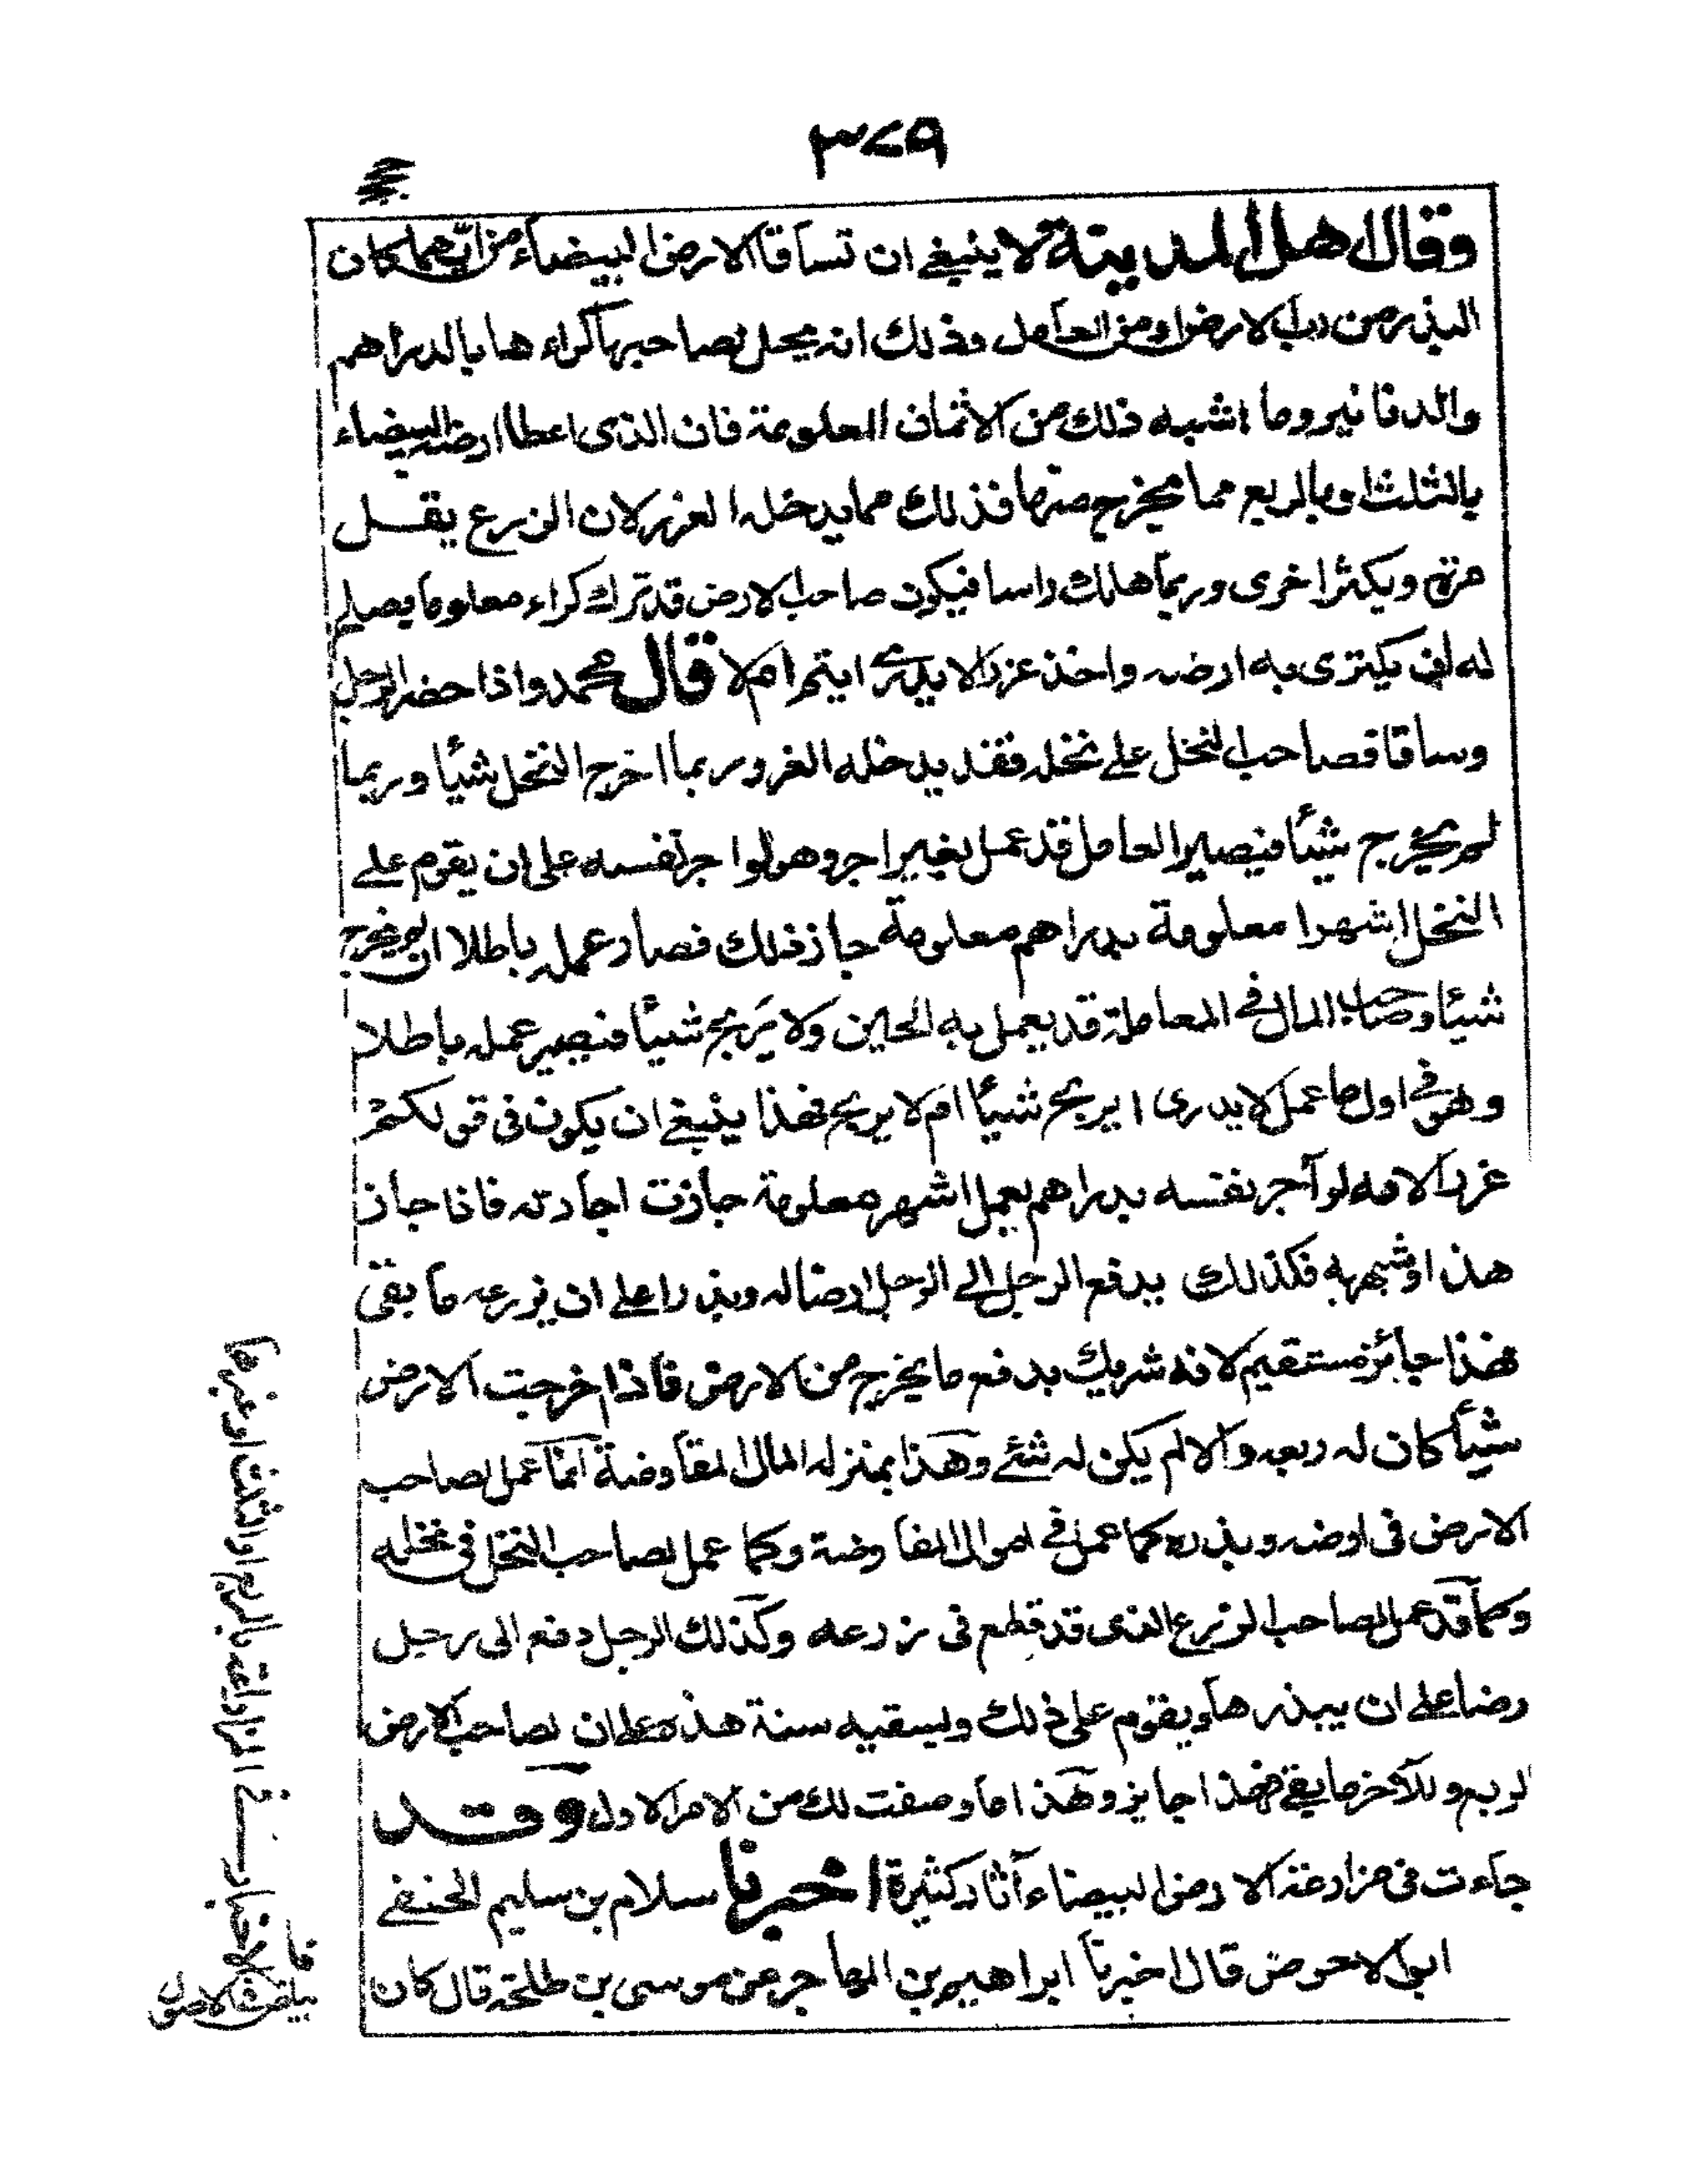 ٣٧٩
وقال اهل المدينة لا ينبغى ان تساقا الارض البيضاء من ايهما كان
البذر من رب الارض او من العامل وذلك انه يحل لصاحبها كراءها بالدراهم
والدنانير وما اشبه ذلك من الاثمان المعلومة فان الذى اعطا ارضه البيضاء
بالثلث او بالربع مما يخرج منها فذلك مما يدخله الغرر لان الزرع يقل
مرة ويكثر اخرى وربما هلك راسا فيكون صاحب الارض قد ترك كراء معلوما يصلح
له ان يكترى به ارضه واخذ غررا لا يدرى ايتم ام لا قال محمد واذا حضر الرجل
وساقا صاحب النخل على نخله فقد يدخله الغرر وربما اخرج النخل شيئا وربما
لم يخرج شيئا فيصير العامل قد عمل بغير اجر وهو لو اجر نفسه على ان يقوم على
النخل اشهرا معلومة بدراهم معلومة جاز ذلك فصار عمله باطلا ان لم يخرج
شيئا وصاحب المال فى المعاملة قد يعمل به الحين ولا يربح شيئا فيصير عمله باطلا
وهو فى اول ما عمل لا يدرى ايربح شيئا ام لا يربح فهذا ينبغى ان يكون فى قولكم
غررا لانه لو آجر نفسه بدراهم يعمل اشهر معلومة جازت اجارته فاذا جاز
هذا اوشبهه فكذلك يدفع الرجل الى الرجل ارضا له وبذرا على ان يزرعه ما بقى
فهذا جائز مستقيم لانه شريك بدفع ما يخرج من الارض فاذا اخرجت الارض
شيئا كان له ربعه والا لم يكن له شئ وهذا بمنزله المال المفاوضة انما عمل لصاحب
الارض فى ارضه وبذره كما عمل فى اموال المفاوضة وكما عمل لصاحب النخل فى نخله
وكما قد عمل لصاحب الزرع الذى قد قطع فى زرعه وكذلك الرجل دفع الى رجل
رضا على ان يبذرها ويقوم على ذلك ويسقيه سنة هذه على ان لصاحب الارض
لربع وللآخر ما يقى فهذا جايز وهذا ما وصفت لك من الامر الاول وقد
جاءت فى مزارعة الارض البيضاء آثار كثيرة اخبرنا سلام بن سليم الحنفى
ابو الاحوص قال اخبرنا ابراهيم بن المهاجر عن موسى بن طلحة قال كان
الاخبار فى المزارعة بالربع او الثلث او غيرها